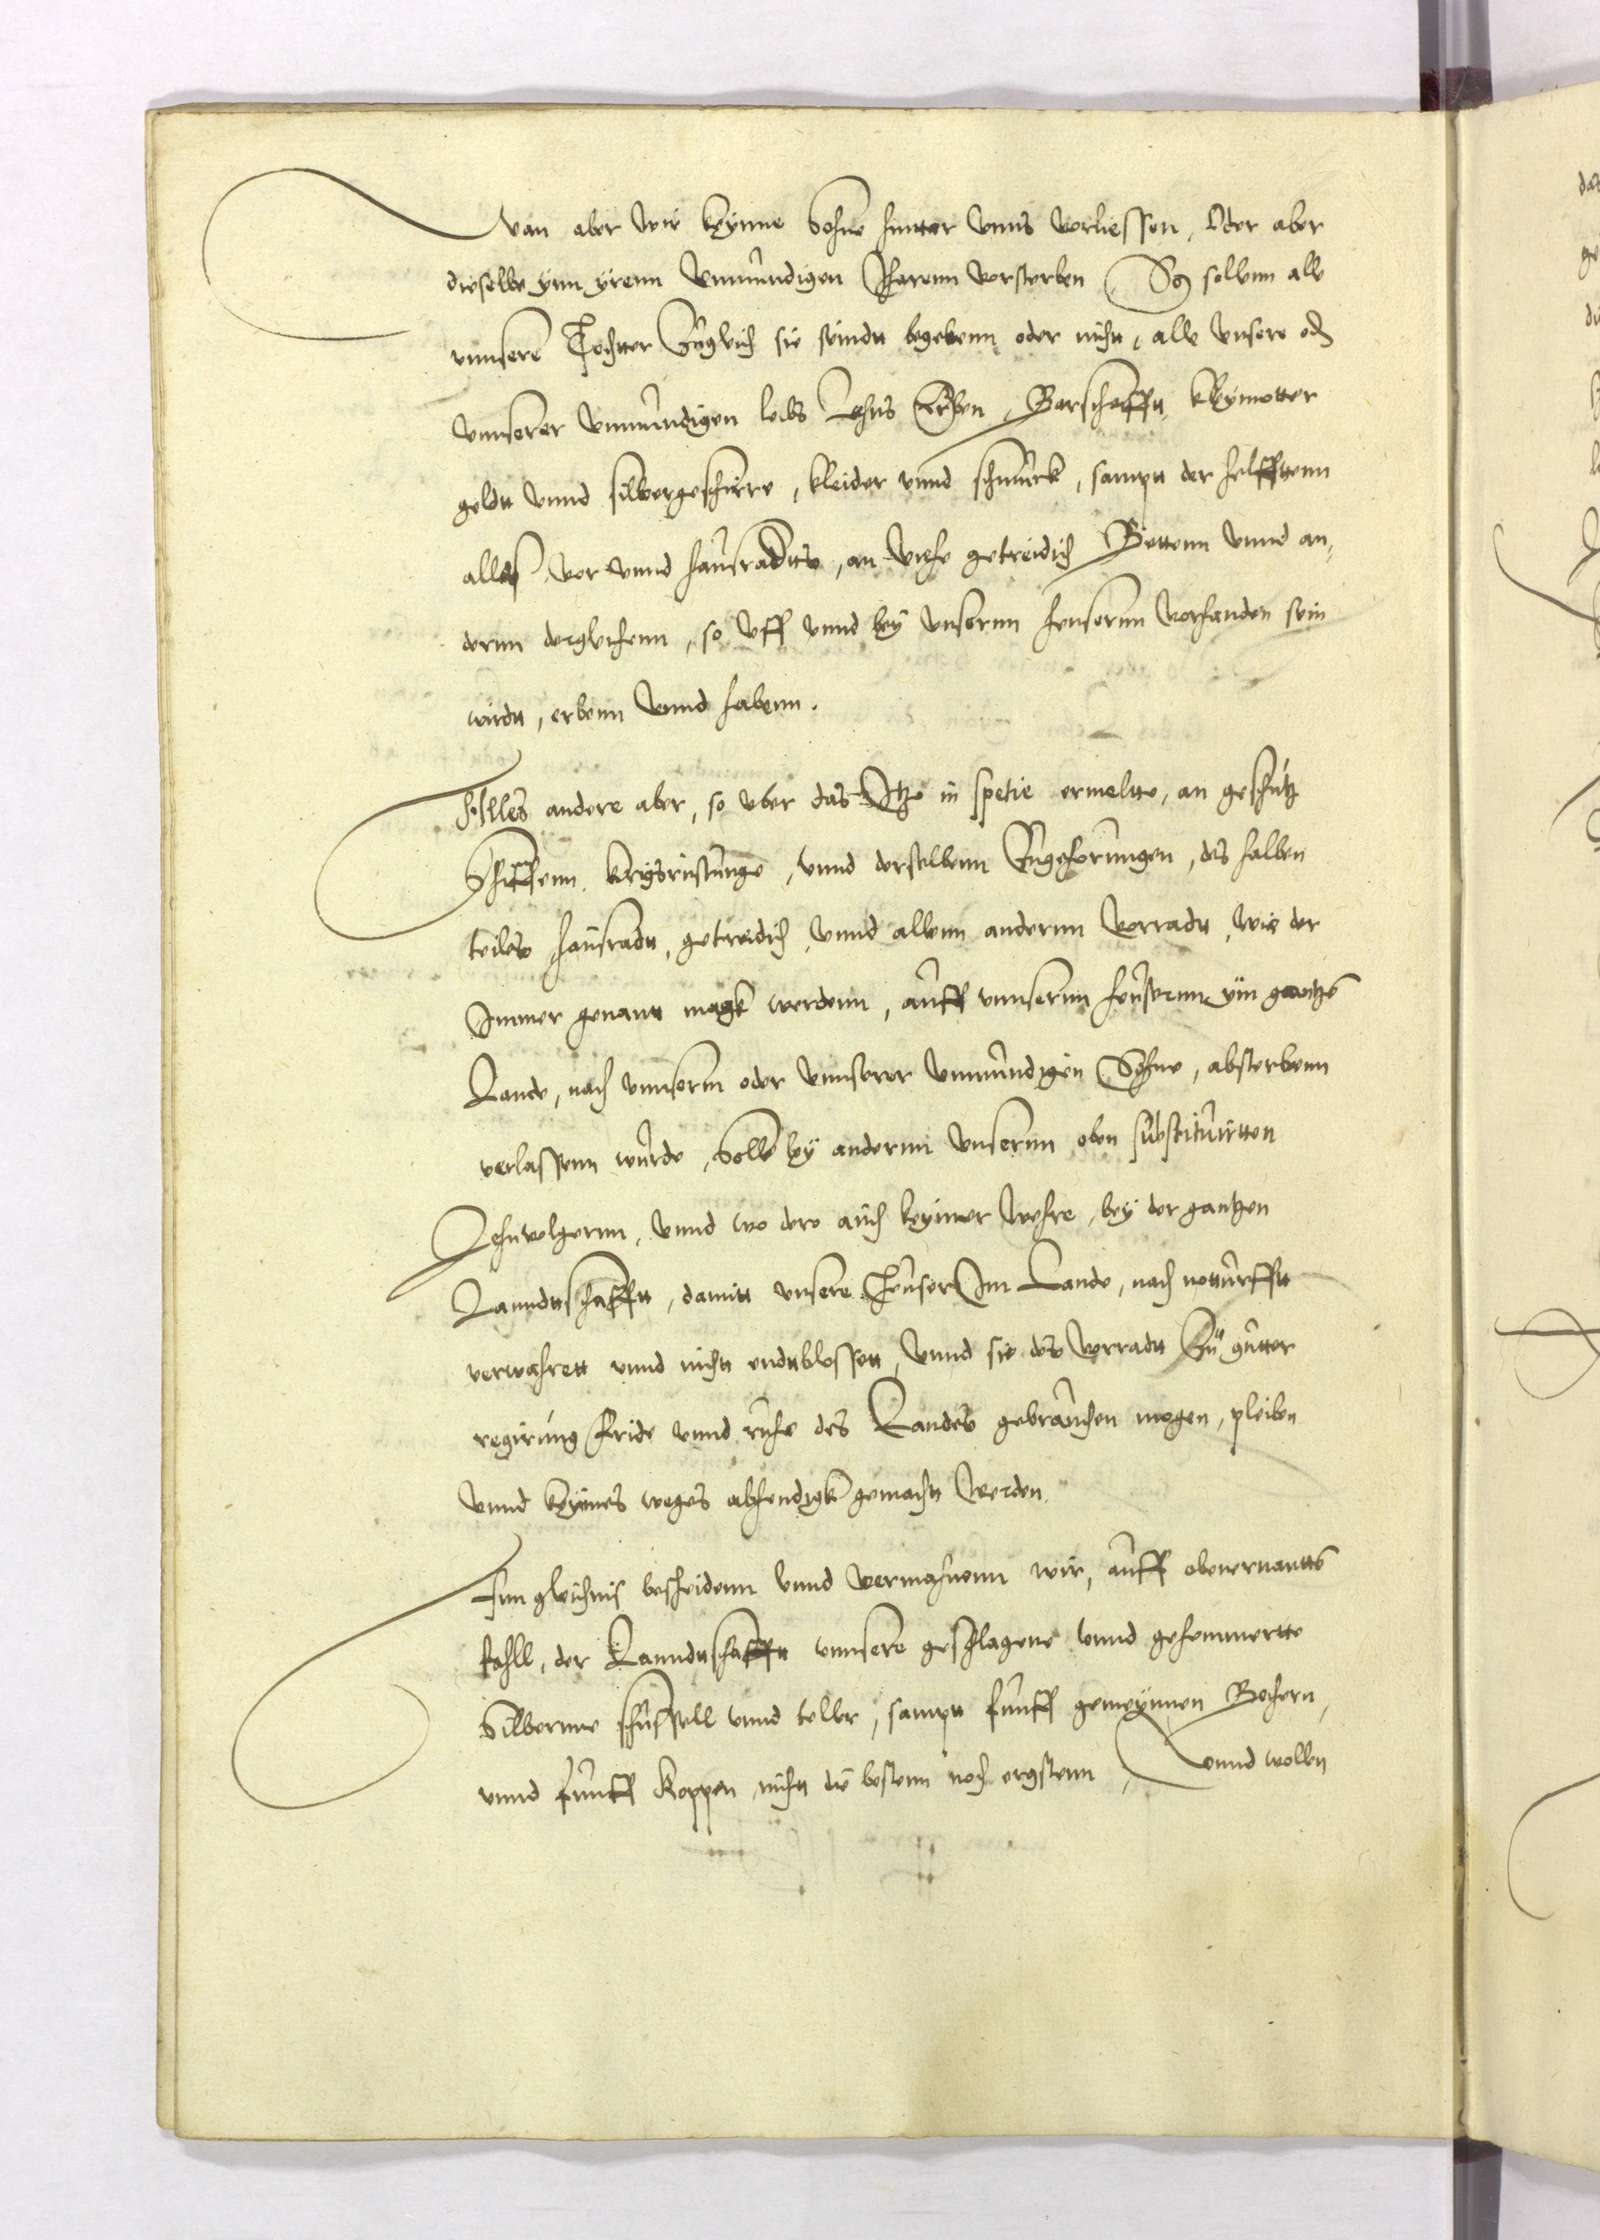 Wan aber wir keynne Sohne hinter vnns vorliessen, Oder aber
dieselbe ynn yrenn Vnmundigen Jharenn vorsterben, So sollenn alle
vnnsere Tochtter Zugleich sie seindtt begebenn oder nichtt, alle vnsere od
vnnserer vnmundigen leibs Lehns Erben, Barschafftt
geldtt vnnd silbergeschirre, kleider vnnd schmuck, samptt der helffttenn
alles vor vnnd hausradtts, an viehe getreidich Bettenn vnnd an,
dernn dergleichenn, so vff vnnd bey vnsernn heusernn vorhanden sein
wirdtt, erbenn vnnd habenn.
Alles andere aber, so vber das Itzo in spetie ermeltte, an geschutz
Schiffenn, krigsrustunge, vnnd derselbenn Zugehorungen, des halben
teiles hausradtt, getreidich, vnnd allenn andernn vorradtt, wie der
Immer genantt magk werdenn, auff vnnsernn heusernn ym gantzen
Lande, nach vnnserm oder vnnserer vnmundigen Sohne, absterbenn
verlassenn wurde, Solle bey andernn vnsernn oben substituirtten
Lehnvolgernn, vnnd wo dero auch keynner Wehre, bey der gantzen
Lanndttschafftt, damitt vnsere heuser Im Lande, nach notturfftt
verwahrett vnnd nichtt endtblossett, vnnd sie des vorradtt Zu gutter
regirung fride vnnd ruhe des Landes gebrauchen mogen, pleiben
vnnd keynnes weges abhendigk gemachtt werden.
Inn gleichnis bescheidenn vnnd vermachenn wir, auff obenernantten
fahll, der Lanndttschafftt vnnsere geschlagene vnnd gehemmertte
Silbernne schussell vnnd teller, samptt funff gemeynnen Bechern,
vnnd funff koppen, nichtt die bestenn noch ergstenn, vnnd wollen